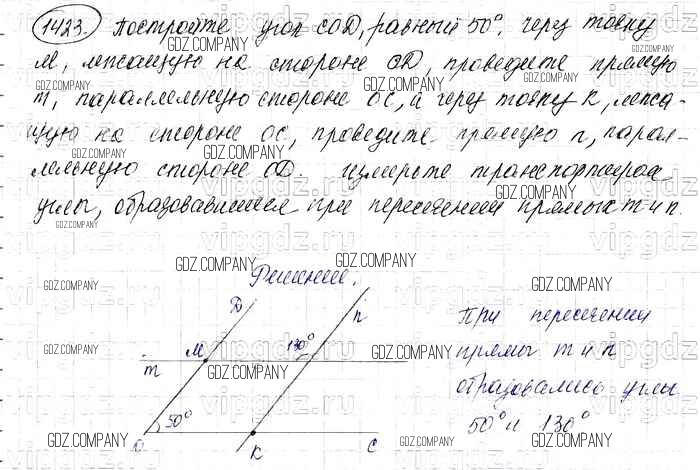 1423. Постройте угол COD, равный 50°. Через точку
M, лежащую на стороне OD, проведите прямую
m, параллельную стороне OC, и через точку K, лежа-
щую на стороне OC, проведите прямую n, парал-
лельную стороне OD. Измерьте транспортиром
углы, образовавшиеся при пересечении прямых m и n.
Решение.
D
n
M
130°
m
50°
O
K
C
При пересечении
прямы m и n
образовались углы
50° и 130°
GDZ.COMPANY
vipgdz.ru